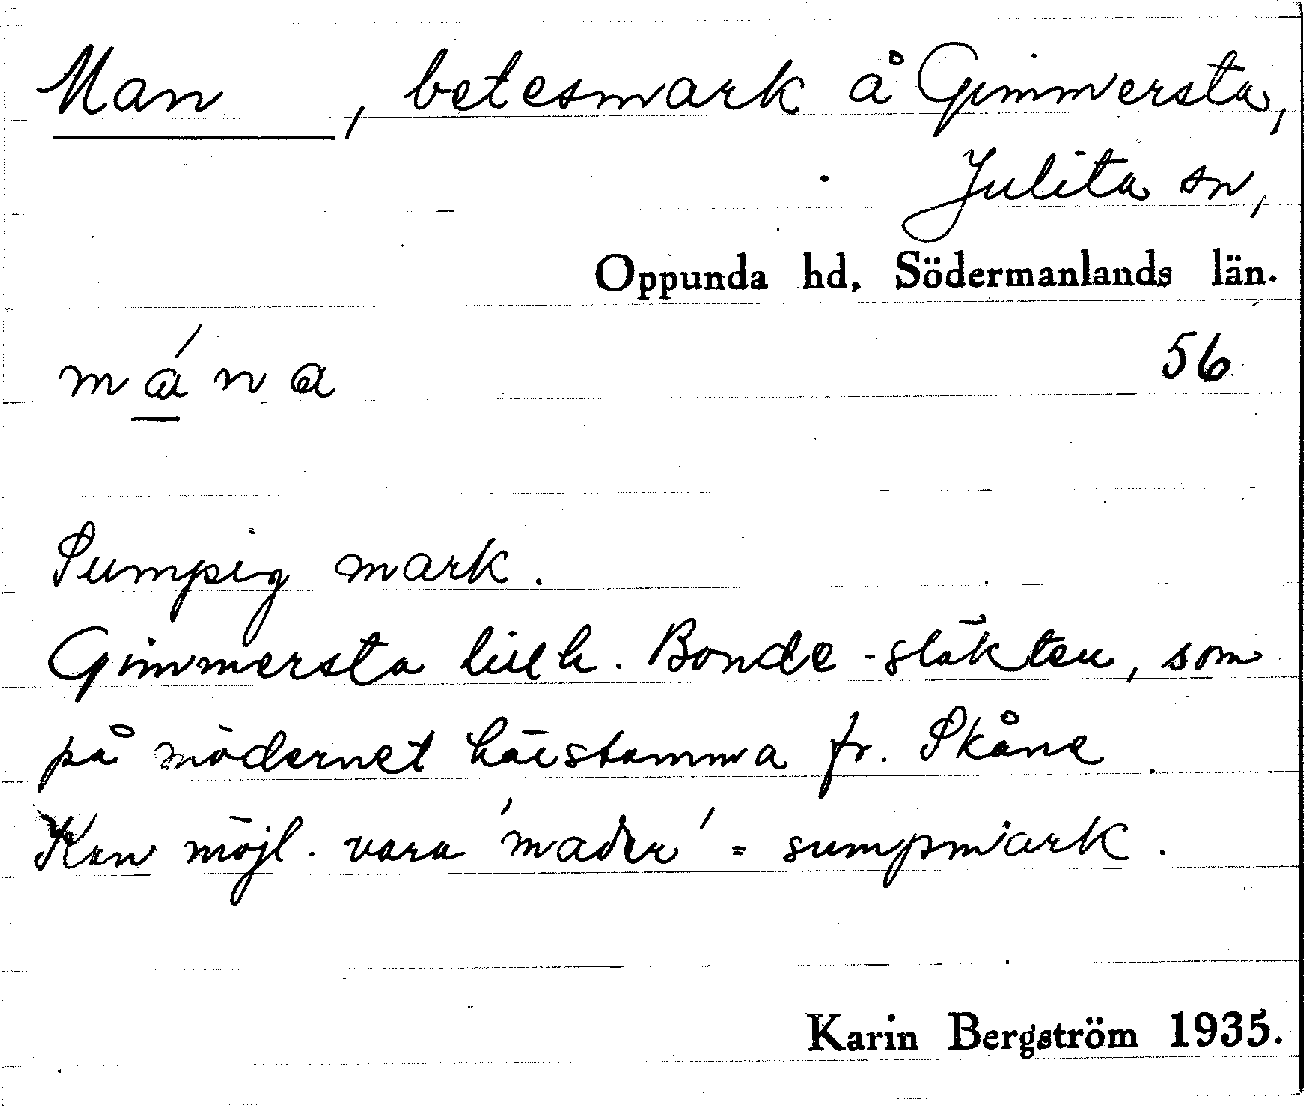 Man, betesmark å Gimmersta,
Julita sn,
Oppunda hd, Södermanlands län.
måna 56
Sumpig mark.
Gimmersta tillh. Bonde-släkten, som
på mödernet härstamma fr. Skåne
Kan möjl. vara 'mader' = sumpmark.
Karin Bergström 1935.